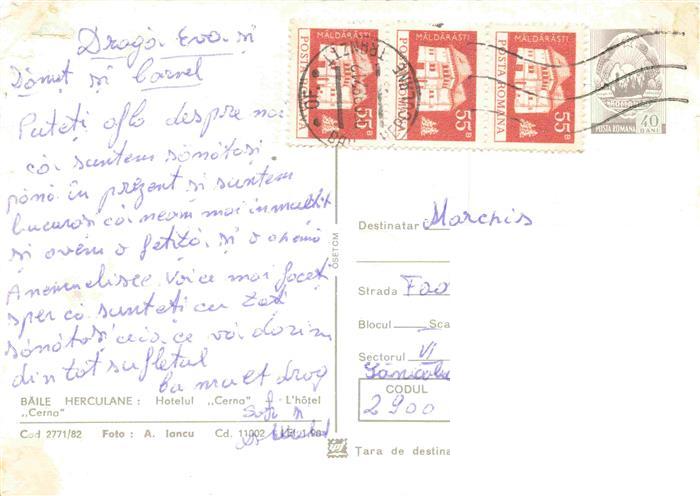 Dragă Eva și
Dănuț și Cornel
Puteți afla despre noi
că suntem sănătoși
până în prezent și suntem
bucuroși că neam mai inmulțit
și avem o fetiță și o chemă
Voi ce mai faceți
sper că sunteți cu toți
sănătoși ceia ce vă dorim
din tot sufletul
cu mult drag
BĂILE HERCULANE: Hotelul „Cerna” - L'hôtel
„Cerna”
Cod 2771/82 Foto: A. Iancu Cd. 11002
OSETCM
MĂLDĂRĂȘTI
POSTA ROMANA
55 B
MĂLDĂRĂȘTI
POSTA ROMANA
55 B
MĂLDĂRĂȘTI
POSTA ROMANA
55 B
POSTA ROMANA
40 BANI
Destinatar Marchis
Strada
Blocul Sca
Sectorul VI
CODUL
2900
Țara de destina